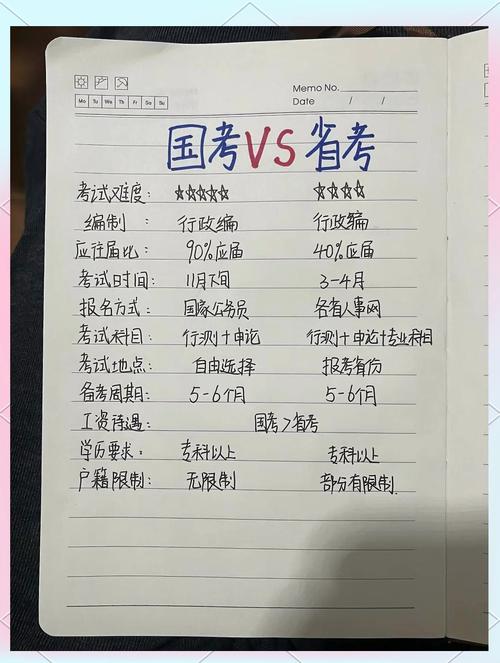 Memo No.
Mo Tu We Th Fr Sa Su
Date / /
国考VS省考
考试难度: ☆☆☆☆☆ ☆☆☆☆
编制: 行政编 行政编
应往届比: 90%应届 40%应届
考试时间: 11月下旬 3-4月
报名方式: 国家公务员 各省人事网
考试科目: 行测+申论 行测+申论+专业科目
考试地点: 自由选择 报考省份
备考周期: 5-6个月 5-6个月
工资待遇: 国考>省考
学历要求: 专科以上 专科以上
户籍限制: 无限制 部分有限制